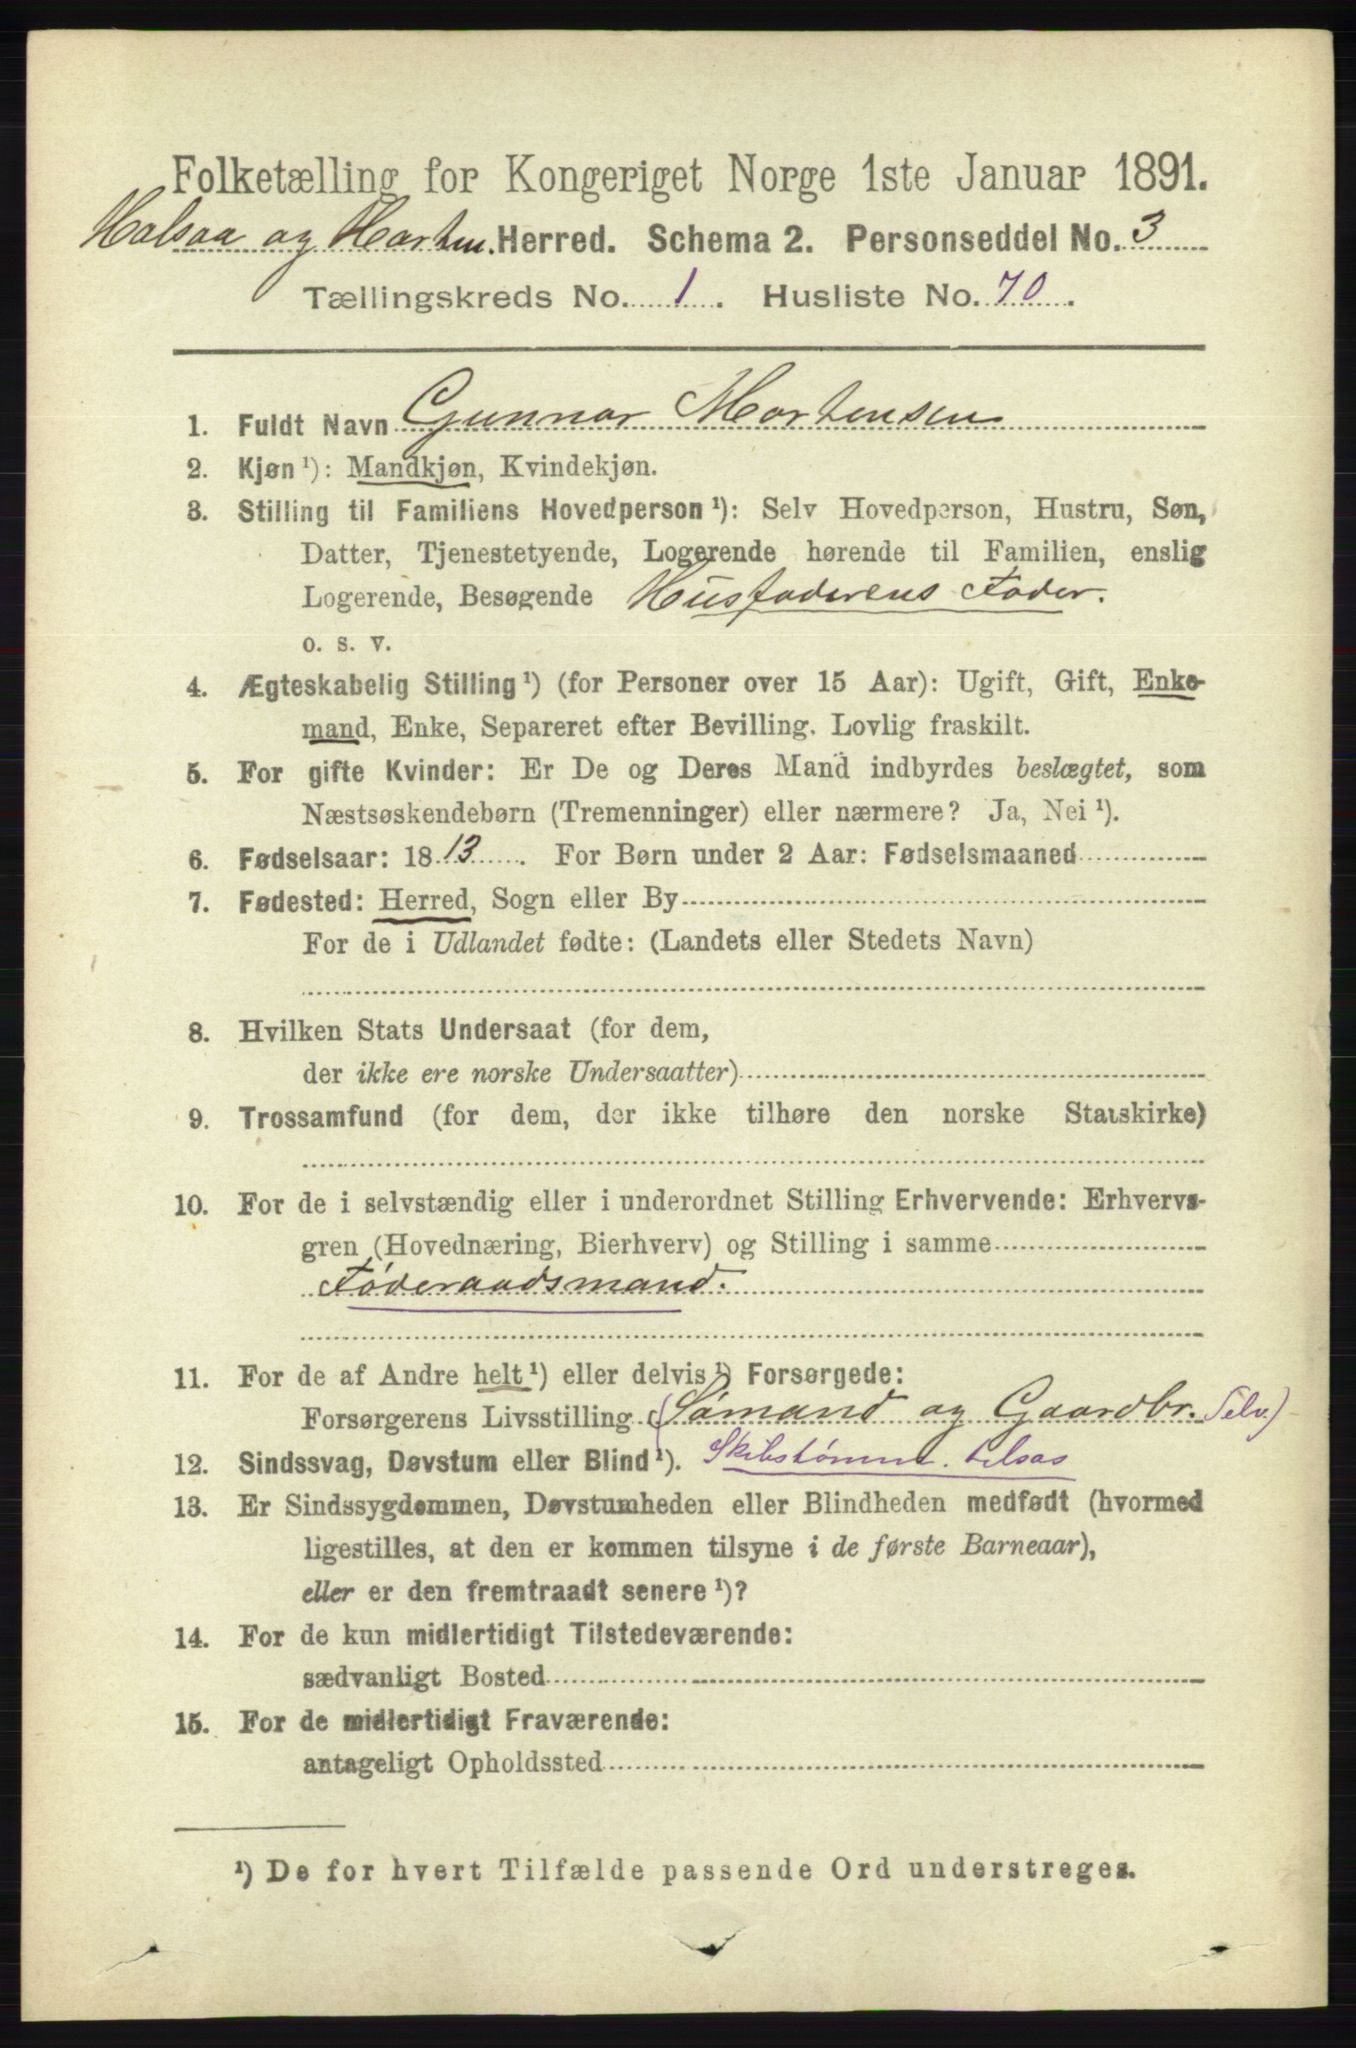 Folketælling for Kongeriget Norge 1ste Januar 1891.
Halsaa og Harten. Herred. Schema 2. Personseddel No. 3
Tællingskreds No. 1. Husliste No. 70.
1. Fuldt Navn Gunnar Mortensen
2. Kjøn ¹): Mandkjøn, Kvindekjøn.
3. Stilling til Familiens Hovedperson ¹): Selv Hovedperson, Hustru, Søn,
Datter, Tjenestetyende, Logerende hørende til Familien, enslig
Logerende, Besøgende Husfaderens Fader.
o. s. v.
4. Ægteskabelig Stilling ¹) (for Personer over 15 Aar): Ugift, Gift, Enke-
mand, Enke, Separeret efter Bevilling. Lovlig fraskilt.
5. For gifte Kvinder: Er De og Deres Mand indbyrdes beslægtet, som
Næstsøskendebørn (Tremenninger) eller nærmere? Ja, Nei ¹).
6. Fødselsaar: 1813. For Børn under 2 Aar: Fødselsmaaned
7. Fødested: Herred, Sogn eller By
For de i Udlandet fødte: (Landets eller Stedets Navn)
8. Hvilken Stats Undersaat (for dem,
der ikke ere norske Undersaatter)
9. Trossamfund (for dem, der ikke tilhøre den norske Statskirke)
10. For de i selvstændig eller i underordnet Stilling Erhvervende: Erhvervs-
gren (Hovednæring, Bierhverv) og Stilling i samme
Føderaadsmand.
11. For de af Andre helt ¹) eller delvis ¹) Forsørgede:
Forsørgerens Livsstilling (Sømand og Gaardbr. Selv.)
12. Sindssvag, Døvstum eller Blind ¹). Skibstømm.
13. Er Sindssygdommen, Døvstumheden eller Blindheden medfødt (hvormed
ligestilles, at den er kommen tilsyne i de første Barneaar),
eller er den fremtraadt senere ¹)?
14. For de kun midlertidigt Tilstedeværende:
sædvanligt Bosted
15. For de midlertidigt Fraværende:
antageligt Opholdssted
¹) De for hvert Tilfælde passende Ord understreges.